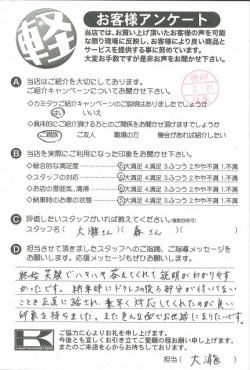 軽
お客様アンケート
当店では、お買い上げ頂いたお客様の声を可能
な限り現場に反映し、お客様により良い商品と
サービスを提供する事に努めています。
大変お手数ですが是非お声をお聞かせ下さい。
A 当店はご紹介を大切にしております。
ご紹介キャンペーンについてお聞かせ下さい。
・カミタケご紹介キャンペーンのご説明はありましたでしょうか
はい いいえ
・具体的にご紹介頂ける方とのご関係をお聞かせ頂けますでしょうか
ご親族 ご友人 職場の方 機会があれば紹介したい
B 当店を実際にご利用になった印象をお聞かせ下さい。
・総合的な満足度 5大満足 4.満足 3.ふつう 2.やや不満 1.不満
・スタッフの対応 5大満足 4.満足 3.ふつう 2.やや不満 1.不満
・お店の雰囲気、清掃 5大満足 4.満足 3.ふつう 2.やや不満 1.不満
・納車時のお車の状態 5大満足 4.満足 3.ふつう 2.やや不満 1.不満
C 評価したいスタッフがいれば教えてください。(複数回答可)
スタッフ名( 大瀧さん )( 森さん )
D 担当させて頂きましたスタッフへのご指摘、ご指導メッセージを
お願いします。応援メッセージもお願いします。
終始笑顔でハキハキ答えてくれて説明がわかりやす
かったです。納車時にドラレコの後ろ部分が付いてない
ことを正直に話され、素早く対応してくれたのが良い
印象を持ちました。また色んな面でお世話になりたいです。
K
ご協力に心よりお礼を申し上げます。
今後とも宜しくお引き立てご愛顧の程お願い申し上げます。
またのご来店を心からお待ちしております。
担当( 大瀧 )